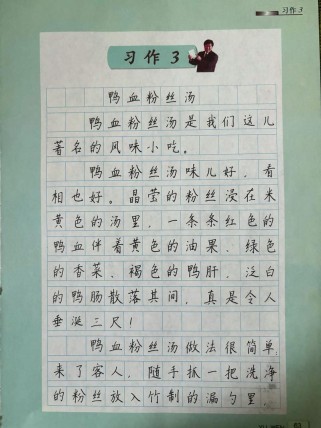 习作3
习作3
鸭血粉丝汤
鸭血粉丝汤是我们这儿
著名的风味小吃。
鸭血粉丝汤味儿好，看
相也好。晶莹的粉丝浸在米
黄色的汤里，一条条红色的
鸭血伴着黄色的油果，绿色
的香菜，褐色的鸭肝，泛白
的鸭肠散落其间，真是令人
垂涎三尺！
鸭血粉丝汤做法很简单，
来了客人，随手抓一把洗净
的粉丝放入竹制的漏勺里，